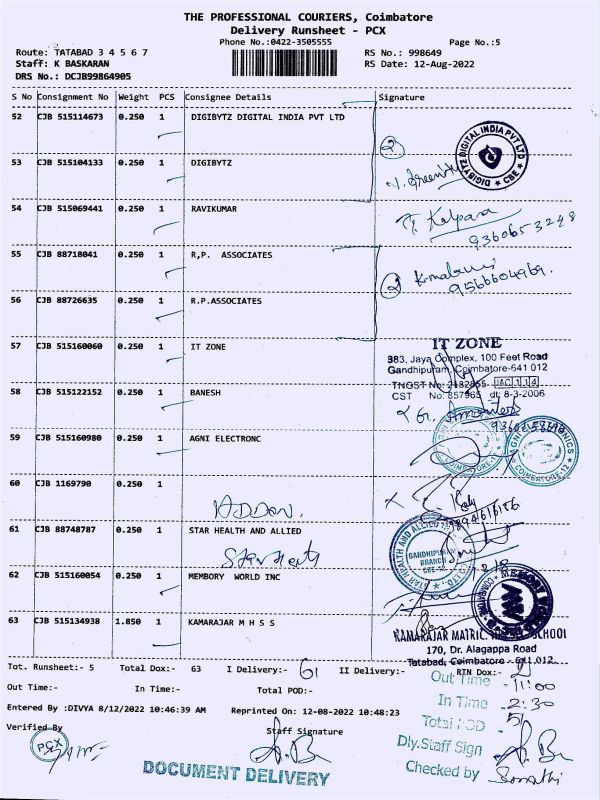 THE PROFESSIONAL COURIERS, Coimbatore
Delivery Runsheet - PCX
Phone No.:0422-3505555
Page No.:5
Route: TATABAD 3 4 5 6 7
RS No.: 998649
Staff: K BASKARAN
RS Date: 12-Aug-2022
DRS No.: DCJB99864905
S No Consignment No Weight PCS Consignee Details Signature
52 CJB 515114673 0.250 1 DIGIBYTZ DIGITAL INDIA PVT LTD
2
DIGIBYTZ DIGITAL INDIA PVT LTD ★ CBE ★
53 CJB 515104133 0.250 1 DIGIBYTZ
54 CJB 515069441 0.250 1 RAVIKUMAR
Kalpana
9360653248
55 CJB 88718041 0.250 1 R,P. ASSOCIATES
2
9566604969.
56 CJB 88726635 0.250 1 R.P.ASSOCIATES
57 CJB 515160060 0.250 1 IT ZONE
IT ZONE
383, Jaya Complex, 100 Feet Road
Gandhipuram, Coimbatore-641 012
TNGST No: 2182855
CST No: 857965 dt: 8-3-2006
58 CJB 515122152 0.250 1 BANESH
59 CJB 515160980 0.250 1 AGNI ELECTRONC
AGNI ELECTRONICS COIMBATORE-12
60 CJB 1169790 0.250 1
ADDON.
61 CJB 88748787 0.250 1 STAR HEALTH AND ALLIED
GANDHIPURAM BRANCH
62 CJB 515160054 0.250 1 MEMBORY WORLD INC
63 CJB 515134938 1.850 1 KAMARAJAR M H S S
KAMARAJAR MATRIC. SCHOOL
170, Dr. Alagappa Road
Tatabad, Coimbatore - 641 012
Tot. Runsheet:- 5 Total Dox:- 63 I Delivery:- 61 II Delivery:- RTN Dox:- 2
Out Time:- In Time:- Total POD:-
Out Time - 11:00
In Time - 2:30
Entered By :DIVYA 8/12/2022 10:46:39 AM Reprinted On: 12-08-2022 10:48:23
Total POD - 51
Verified By
Staff Signature
PCX
Dly.Staff Sign
DOCUMENT DELIVERY
Checked by